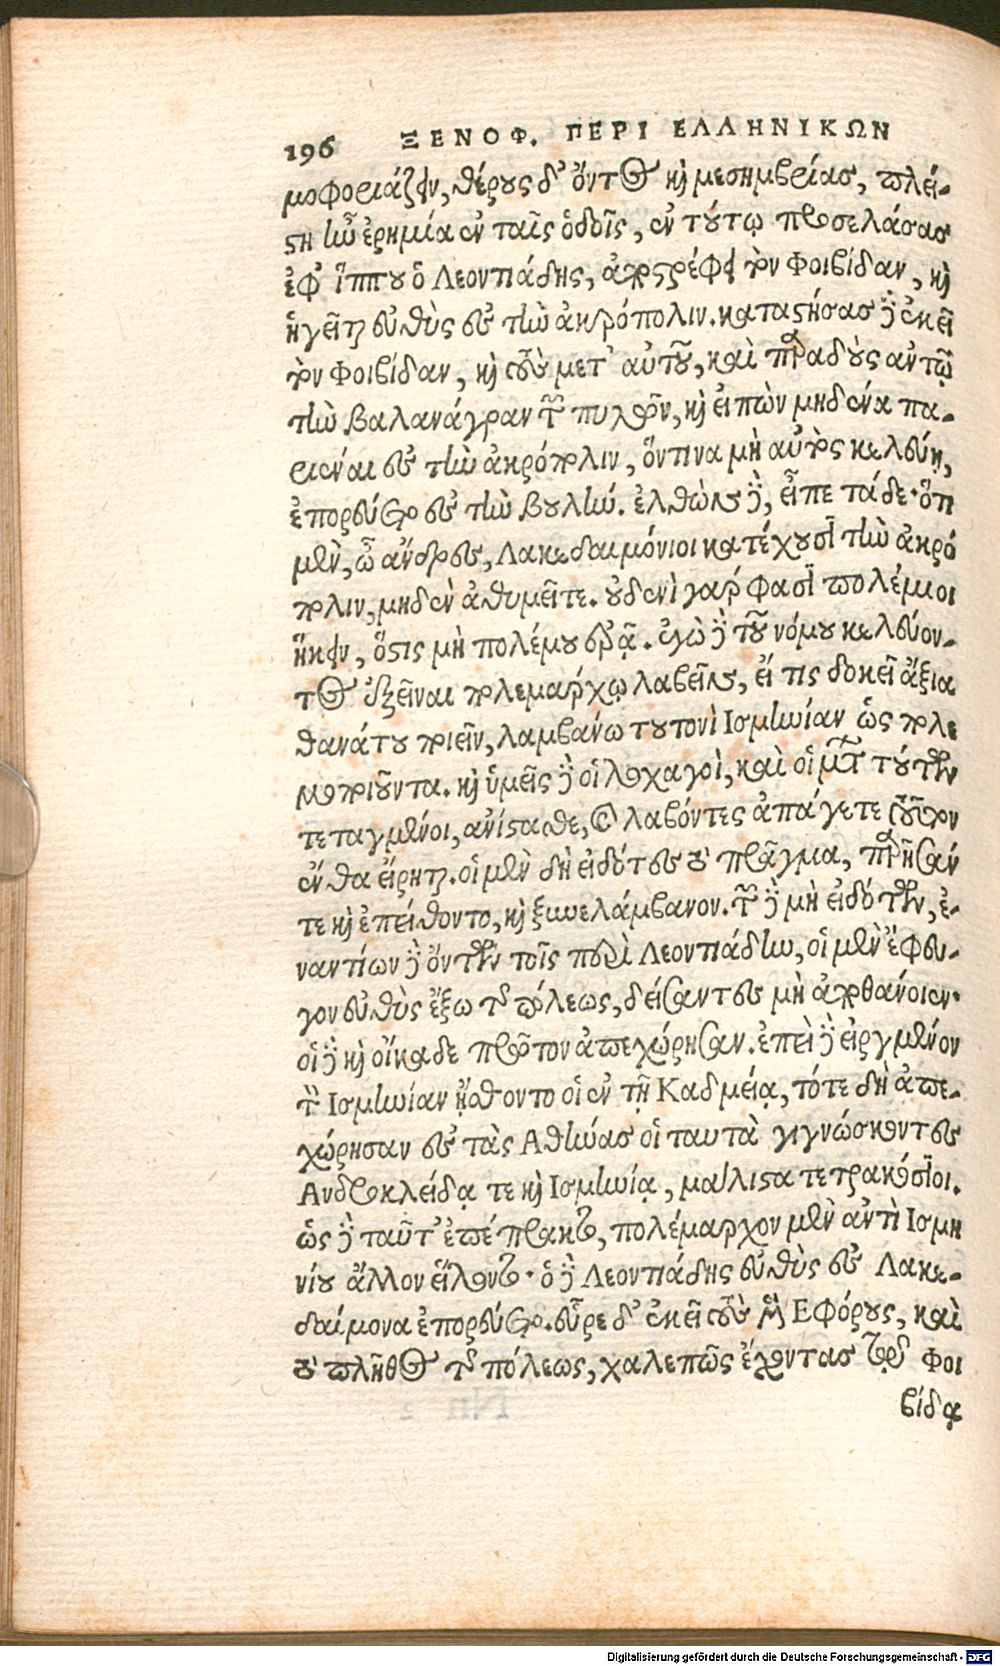 196 ΞΕΝΟΦ. ΠΕΡΙ ΕΛΛΗΝΙΚΩΝ
μοφοριάζειν, θέρους δ' ὄντος καὶ μεσημβρίας, πλεί-
στη ἦν ἐρημία ἐν ταῖς ὁδοῖς, ἐν τούτῳ προσελάσας
ἐφ' ἵππου ὁ Λεοντιάδης, ἀποστρέφει τὸν Φοιβίδαν, καὶ
ἡγεῖται εὐθὺς εἰς τὴν ἀκρόπολιν. καταστήσας δὲ ἐκεῖ
τὸν Φοιβίδαν, καὶ τοὺς μετ' αὐτοῦ, καὶ παραδοὺς αὐτῷ
τὴν βαλανάγραν τῶν πυλῶν, καὶ εἰπὼν μηδένα πα-
ριέναι εἰς τὴν ἀκρόπολιν, ὅντινα μὴ αὐτὸς κελεύῃ,
ἐπορεύετο εἰς τὴν βουλήν. ἐλθὼν δὲ, εἶπε τάδε· ὅτι
μὲν, ὦ ἄνδρες, Λακεδαιμόνιοι κατέχουσι τὴν ἀκρό
πολιν, μηδὲν ἀθυμεῖτε. οὐδενὶ γάρ φασι πολέμιοι
ἥκειν, ὅστις μὴ πολέμου ἐρᾷ. ἐγὼ δὲ τοῦ νόμου κελεύον-
τος ἐξεῖναι πολεμάρχῳ λαβεῖν, εἴ τις δοκεῖ ἄξια
θανάτου ποιεῖν, λαμβάνω τουτονὶ Ισμηνίαν ὡς πολε
μοποιοῦντα. καὶ ὑμεῖς δὲ οἱ λοχαγοὶ, καὶ οἱ μετὰ τούτων
τεταγμένοι, ἀνίστασθε, καὶ λαβόντες ἀπάγετε τοῦτον
ἔνθα εἴρηται. οἱ μὲν δὴ εἰδότες τὸ πρᾶγμα, παρῆσάν
τε καὶ ἐπείθοντο, καὶ ξυνελάμβανον. τῶν δὲ μὴ εἰδότων, ἐ-
ναντίων δὲ ὄντων τοῖς περὶ Λεοντιάδην, οἱ μὲν ἔφευ-
γον εὐθὺς ἔξω τῆς πόλεως, δείσαντες μὴ ἀποθάνοιεν·
οἱ δὲ καὶ οἴκαδε πρῶτον ἀπεχώρησαν. ἐπεὶ δὲ εἰργμένον
τὸν Ισμηνίαν ᾔσθοντο οἱ ἐν τῇ Καδμείᾳ, τότε δὴ ἀπε-
χώρησαν εἰς τὰς Αθήνας οἱ ταυτὰ γιγνώσκοντες
Ανδροκλείδᾳ τε καὶ Ισμηνίᾳ, μάλιστα τετρακόσιοι.
ὡς δὲ ταῦτ' ἐπέπρακτο, πολέμαρχον μὲν ἀντὶ Ισμη
νίου ἄλλον εἵλοντο· ὁ δὲ Λεοντιάδης εὐθὺς εἰς Λακε-
δαίμονα ἐπορεύετο. εὗρε δ' ἐκεῖ τοὺς μὲν Εφόρους, καὶ
τὸ πλῆθος τῆς πόλεως, χαλεπῶς ἔχοντας τῷ Φοι
βίδᾳ
Digitalisierung gefördert durch die Deutsche Forschungsgemeinschaft - DFG